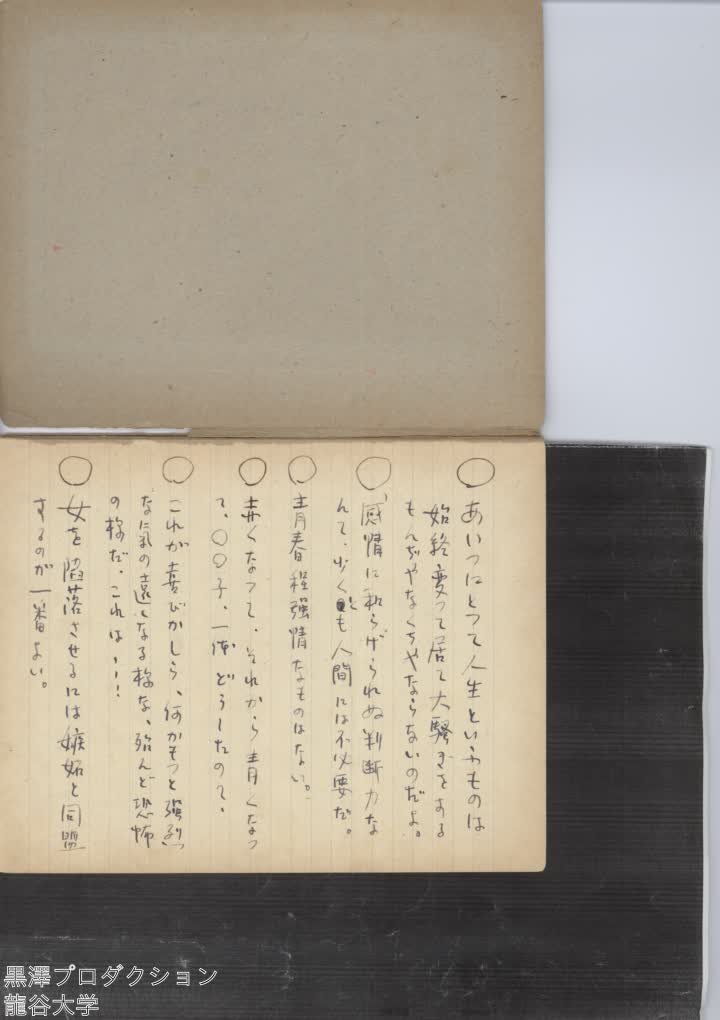 ○ あいつにとつて人生といふものは
始終変つて居て大騒ぎをする
もんぢやなくちやならないのだよ。
○ 感情に和らげられぬ判断力な
んて、少くも人間には不必要だ。
○ 青春程強情なものはない。
○ 赤くなつて、それから青くなつ
て、○○子、一体どうしたのて、
○ これが喜びかしら、何かもつと強烈
な気の遠くなる様な、殆んど恐怖
の様だ、これは、、!!
○ 女を陥落させるには嫉妬と同盟
するのが一番よい。
黒澤プロダクション
龍谷大学